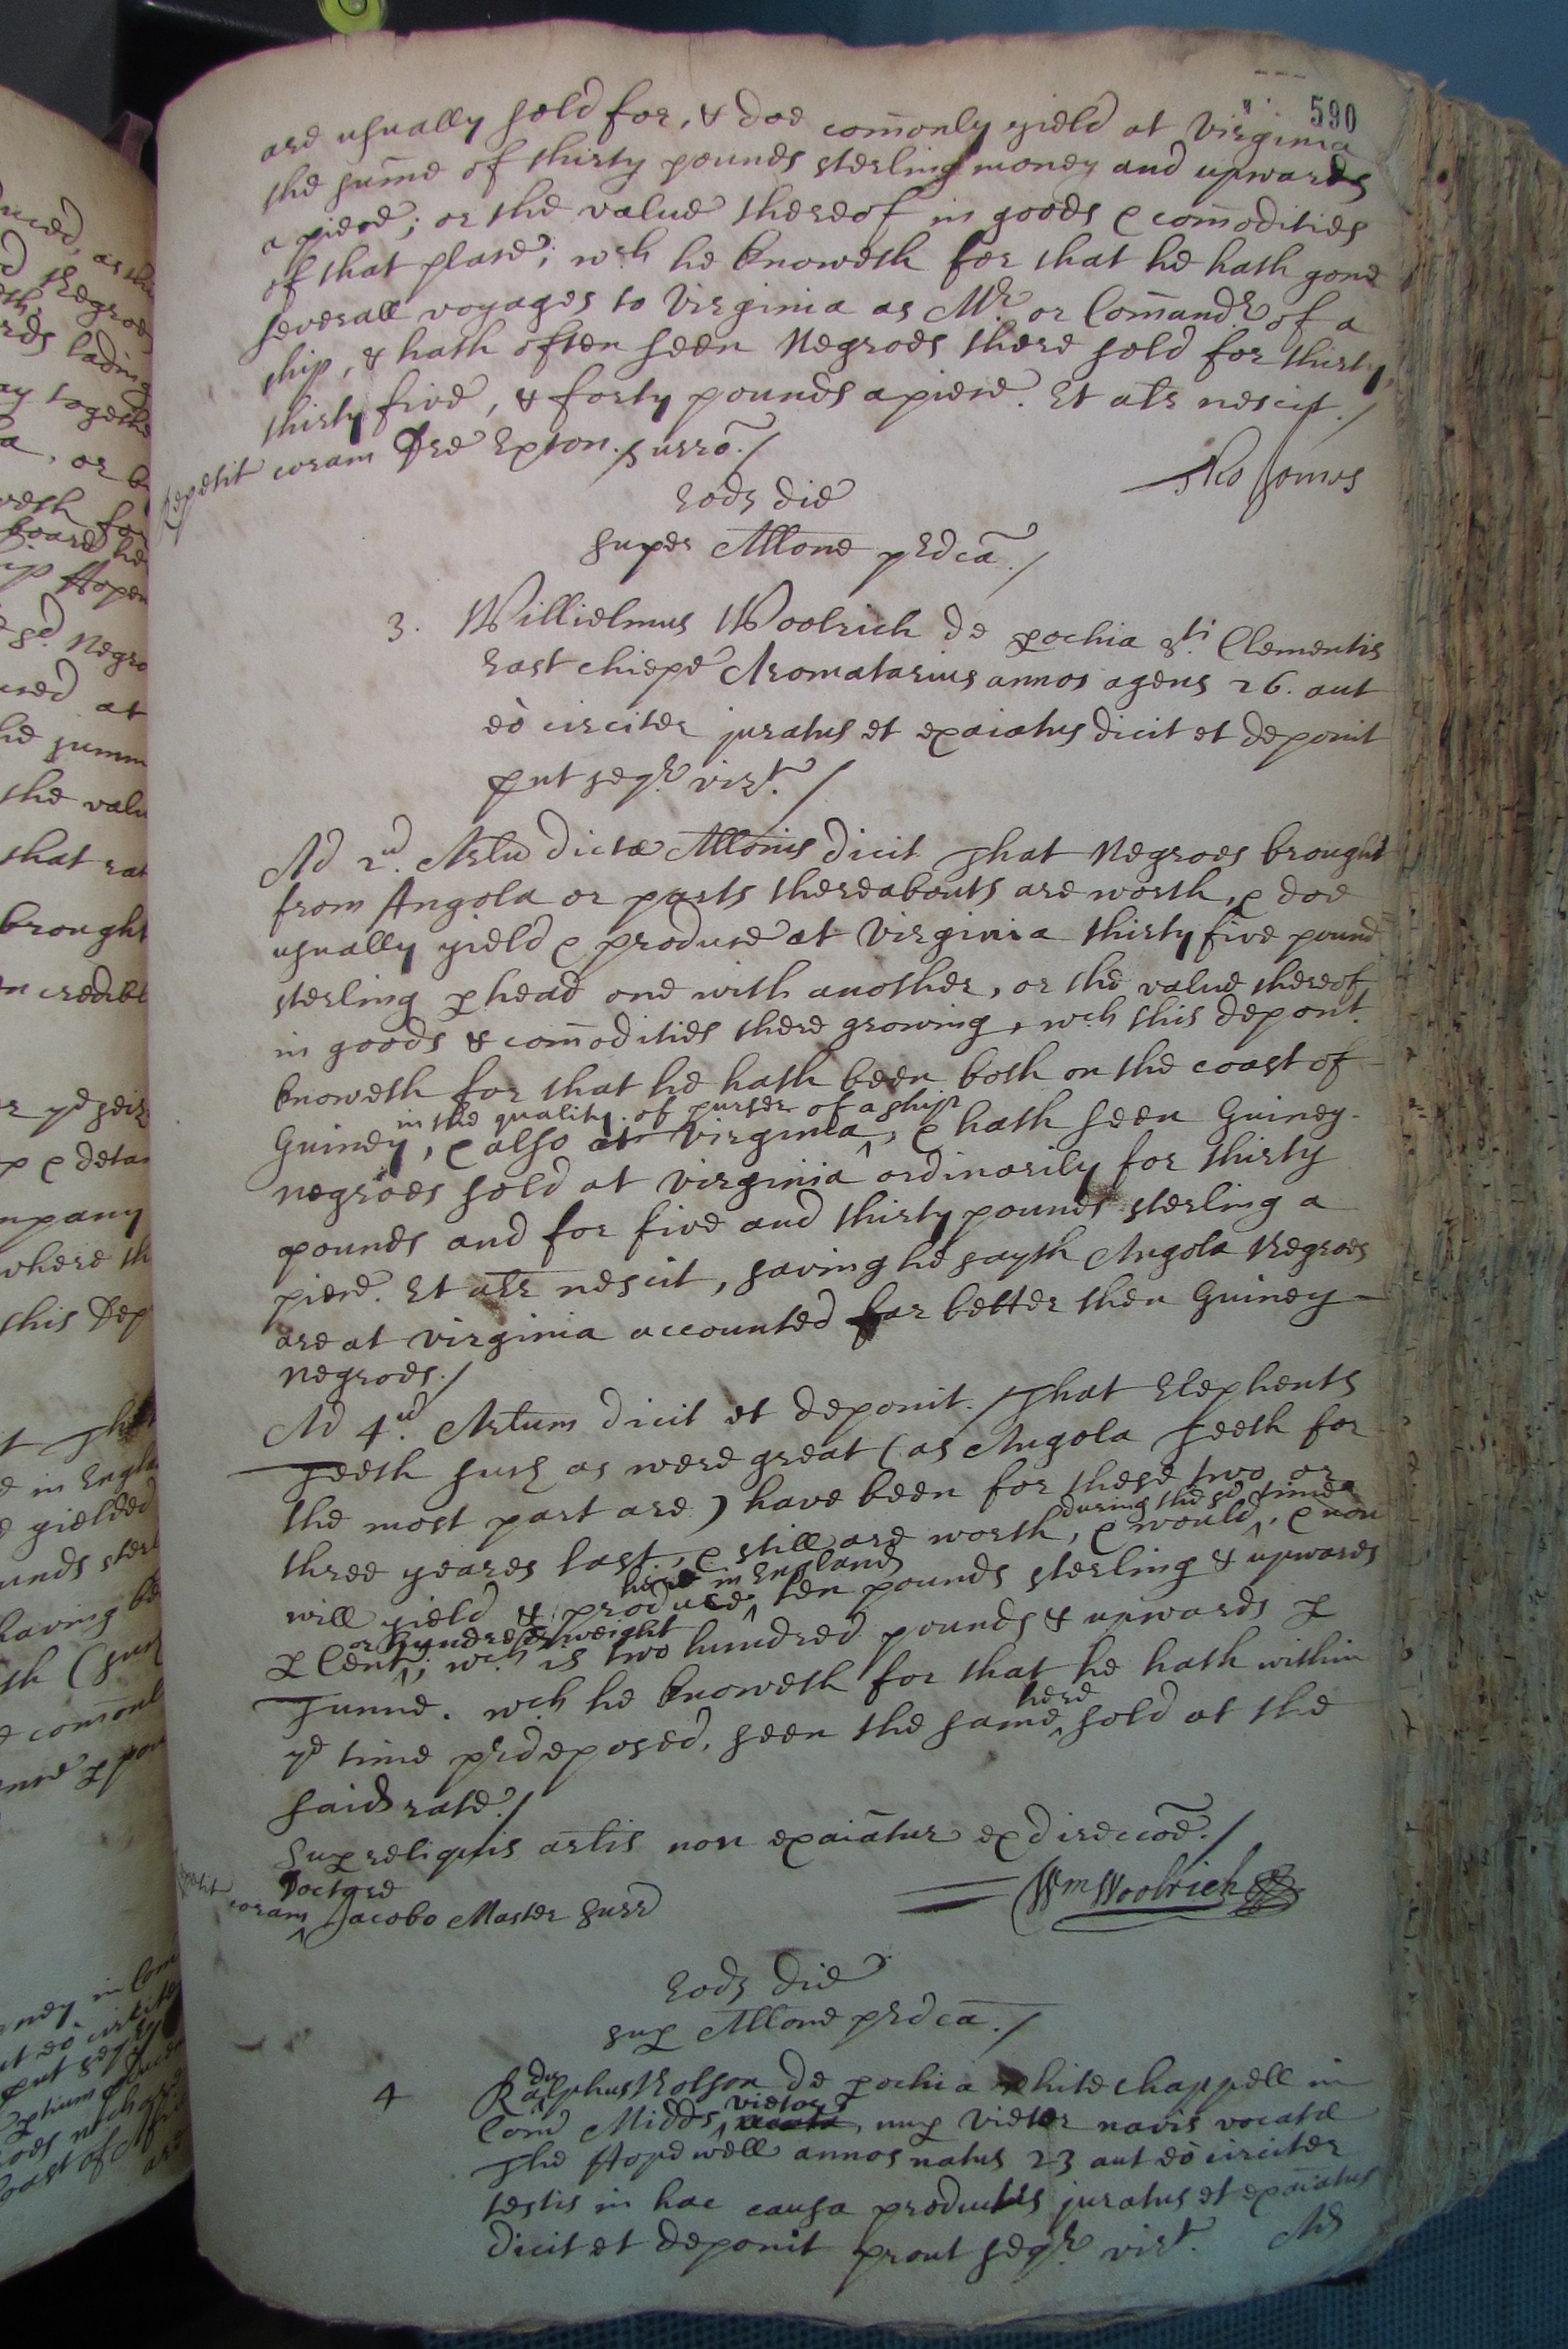 590
are usually sold for, & doe com̄only yield at Virginia
the sum̄e of thirty pounds sterling money and upwards
a piece; or the value thereof in goods & com̄odities
of that place; wch he knoweth for that he hath gone
severall voyages to Virginia as Mr. or Com̄andr of a
ship, & hath often seen Negroes there sold for thirty,
thirty five, & forty pounds apiece. Et alr nescit./
Repetit coram Dre Exton. surro./
Tho Jomes
Eodz die
super Allone prdca./
3. Willielmus Woolrich de pochia Sti Clementis
East chiepe Aromatarius annos agens 26. aut
eò circiter juratus et exaiatus dicit et deponit
put seqr. vizt./
Ad 2ud. Artu dictæ Allonis dicit That Negroes brought
from Angola or parts thereabouts are worth, & doe
usually yield & produce at Virginia thirty five pound
sterling p head one with another, or the value thereof
in goods & com̄odities there growing, wch this depont.
knoweth for that he hath been both on the coast of
in the quality of purser of a ship
Guiney, & also at Virginia, & hath seen Guiney-
negroes sold at Virginia ordinarily for thirty
pounds and for five and thirty pounds sterling a
piece. Et alr nescit, saving he sayth Angola Negroes
are at Virginia accounted far better then Guiney
negroes./
Ad 4ud. Artum dicit et deponit. That Elephents
Teeth such as were great (as Angola teeth for
the most part are) have been for these two or
during the sd time
three yeares last, & still are worth, & would, & now
here in England
will yield & produce ten pounds sterling & upwards
or hundred weight
p Cent; wch is two hundred pounds & upwards p
Tunne. wch he knoweth for that he hath within
here
ye time prdeposed, seen the same sold at the
said rate./
Sup reliquis artlis non exaiatur ex direccoe./
Repetit coram Doctore Jacobo Master surr
Wm Woolrich
Eodz die
sup Allone prdca./
4 Radusphus Rolfson de pochia white chappell in
vietor
Com̄ Midds, nup vietor navis vocatæ
The Hopewell annos natus 23 aut eò circiter
testis in hac causa productus juratus et exaiatus
dicit et deponit prout seqr. vizt. Ad